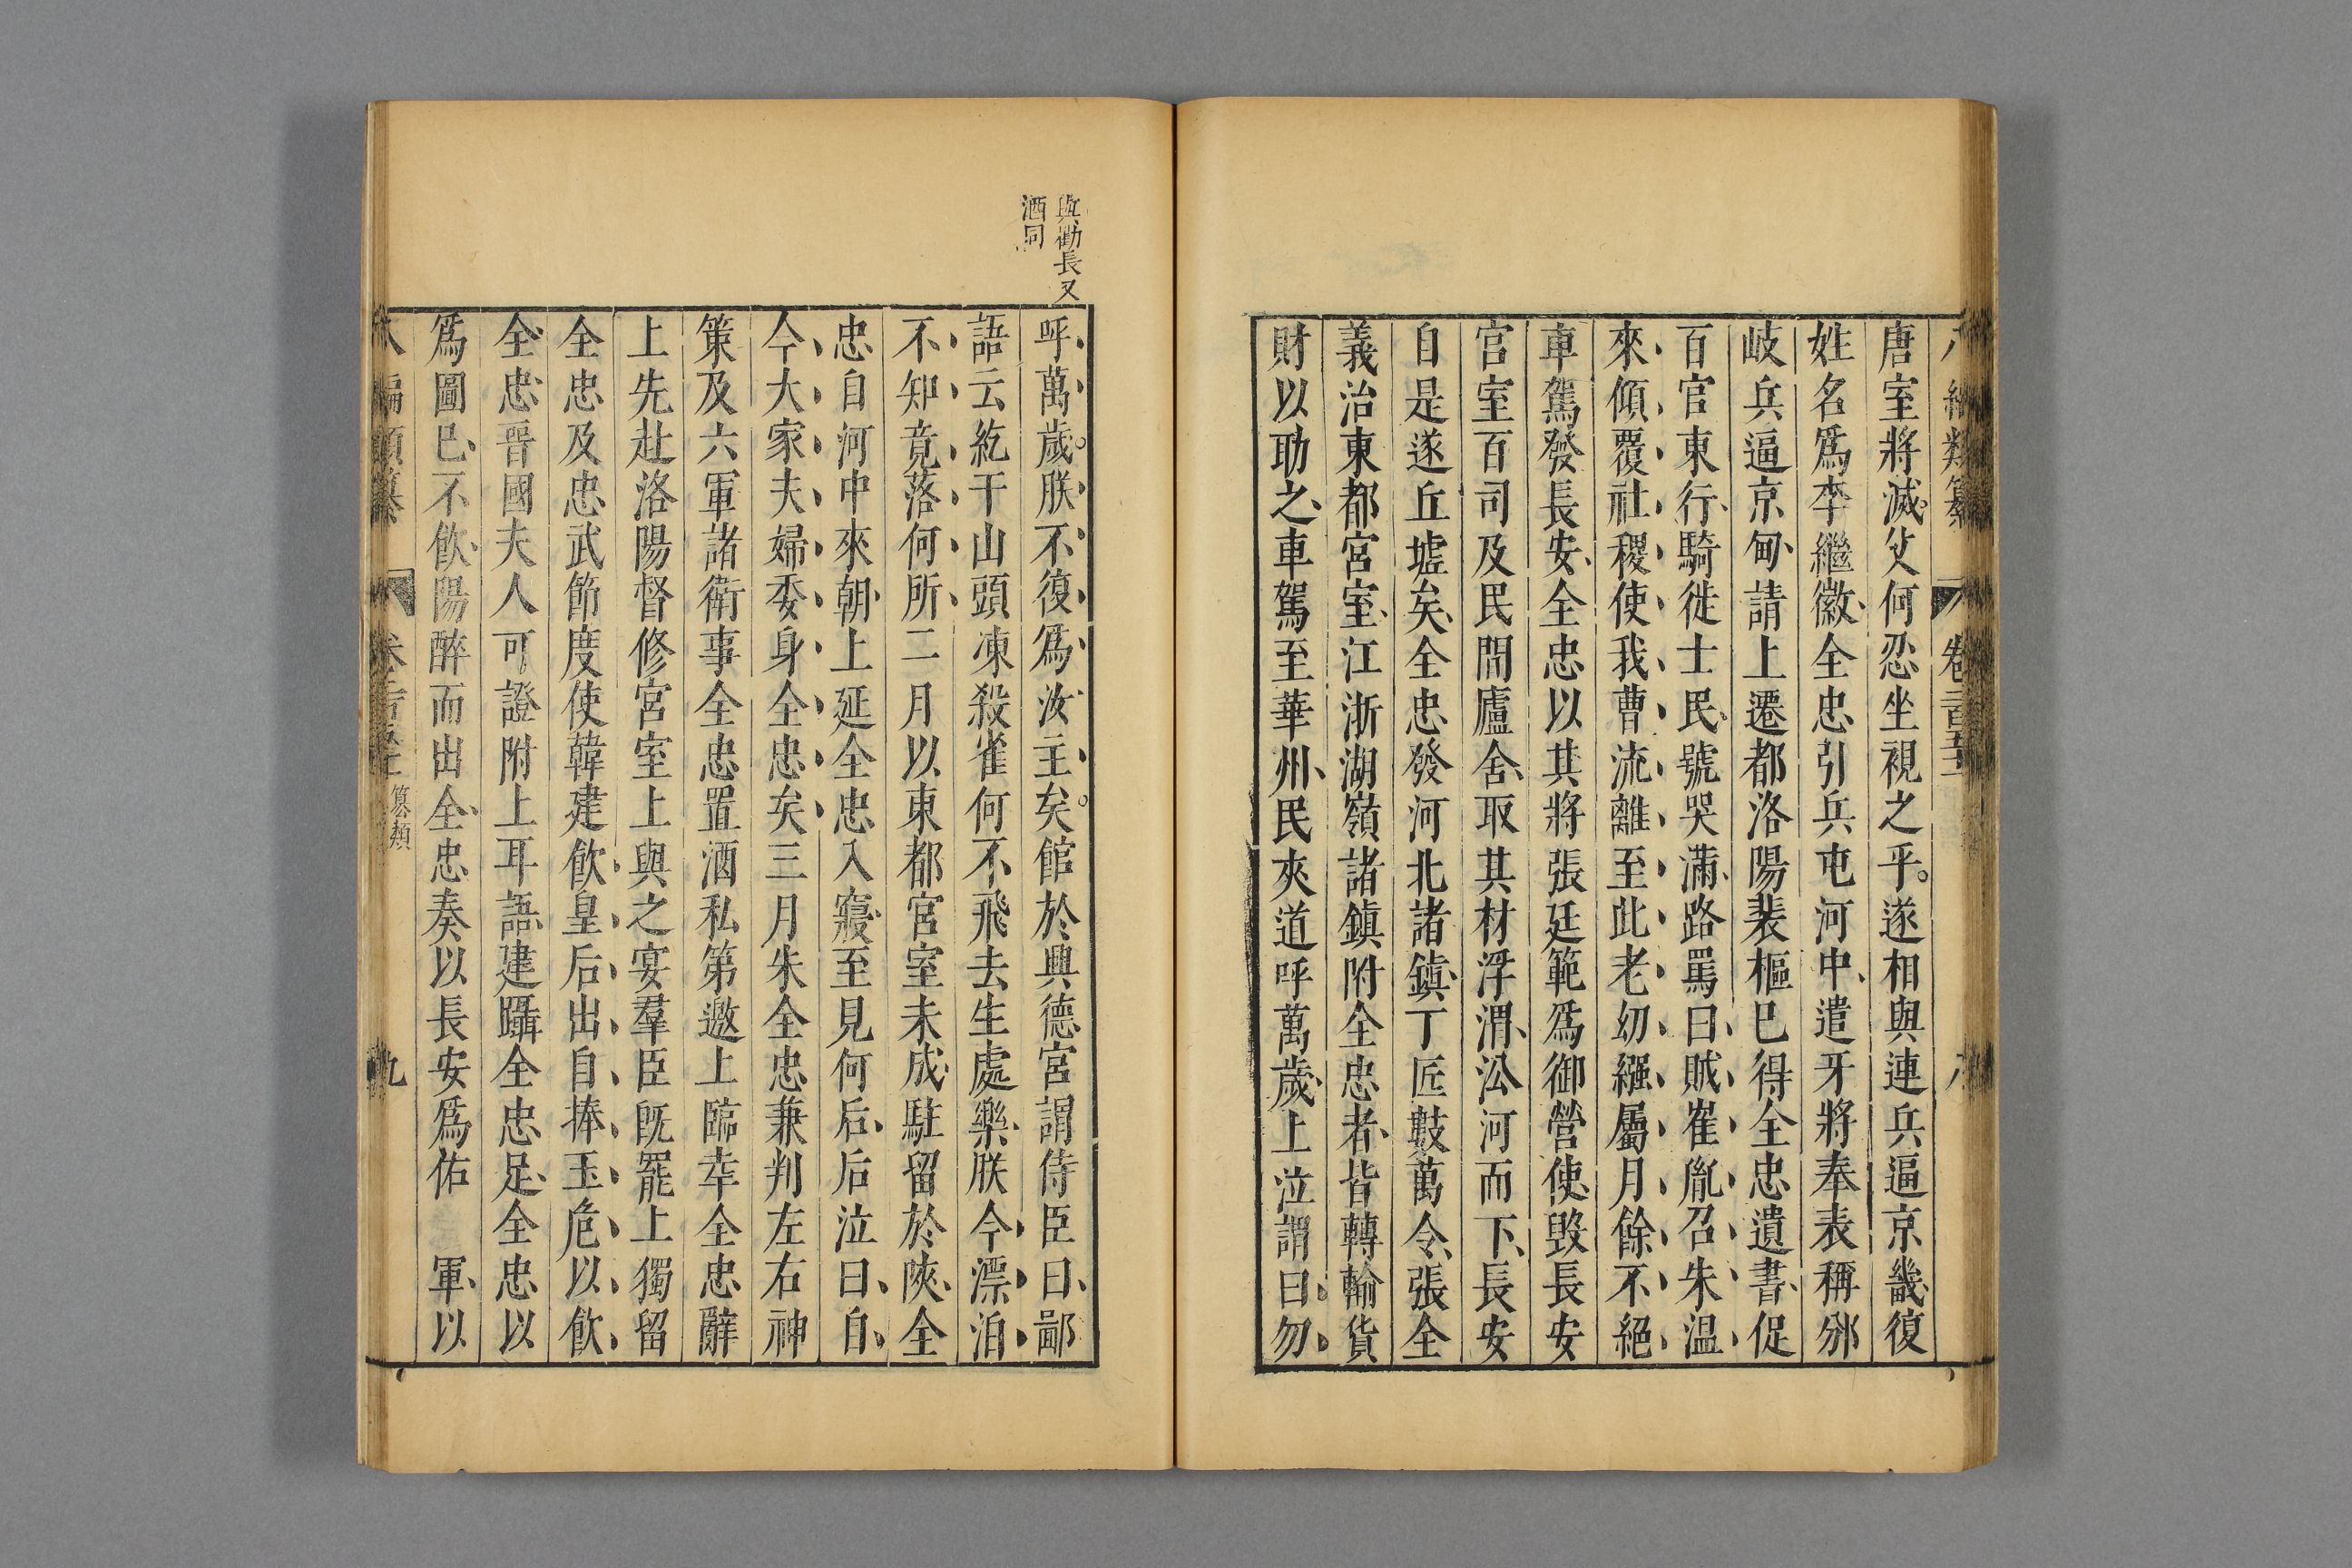 編類纂 卷二百五十五
唐室將滅父何忍坐視之乎。遂相與連兵逼京畿復
姓名爲李繼徽全忠引兵屯河中、遣牙將奉表稱邠
岐兵逼京甸、請上遷都洛陽裴樞已得全忠遺書、促
百官東行、騎徙士民、號哭滿路罵曰、賊崔胤召朱溫
來、傾覆社稷使我曹流離至此老幼繦屬月餘不絕
車駕發長安、全忠以其將張廷範爲御營使、毀長安
宮室百司及民間廬舍、取其材浮渭、沿河而下、長安
自是遂丘墟矣、全忠發河北諸鎮、丁匠數萬令、張全
義治東都宮室、江浙湖嶺諸鎮附全忠者、皆轉輸貨
財以助之、車駕至華州、民夾道呼萬歲、上泣謂曰、勿
呼萬歲。朕不復爲汝主矣。館於興德宮謂侍臣曰、鄙
語云紇干山頭凍殺雀何不飛去生處樂、朕今漂泊
不知竟落何所二月以東都宮室未成、駐留於陝、全
忠自河中來朝、上延全忠入寢至見何后、后泣曰、自
今大家夫婦委身全忠矣三月朱全忠兼判左右神
策及六軍諸衛事全忠置酒私第邀上臨幸全忠辭
上先赴洛陽督修宮室上與之宴羣臣旣罷上獨留
全忠及忠武節度使韓建飲皇后出自捧玉卮以飲
全忠、晉國夫人可證附上耳語、建躡全忠足、全忠以
爲圖已、不飲陽醉而出全忠奏以長安爲佑 軍、以
編類纂 篡類 九
與勸長又
酒同